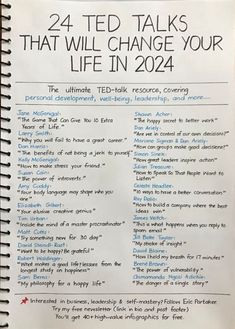 24 TED TALKS
THAT WILL CHANGE YOUR
LIFE IN 2024
The ultimate TED-talk resource, covering
personal development, well-being, leadership, and more...
Jane McGonigal:
"The Game That Can Give You 10 Extra
Years of Life."
Larry Smith:
"Why you will fail to have a great career."
Dan Harris:
"The benefits of not being a jerk to yourself"
Kelly McGonigal:
"How to make stress your friend."
Susan Cain:
"The power of introverts."
Amy Cuddy:
"Your body language may shape who
you are."
Elizabeth Gilbert:
"Your elusive creative genius"
Tim Urban:
"Inside the mind of a master procrastinator"
Matt Cutts:
"Try something new for 30 day"
David Steindl-Rast:
"Want to be happy? Be grateful"
Robert Waldinger:
"What makes a good life? Lessons from the
longest study on happiness"
Sam Berns:
"My philosophy for a happy life"
Shawn Achor:
"The happy secret to better work"
Dan Ariely:
"Are we in control of our own decisions?"
Mariano Sigman & Dan Ariely:
"How can groups make good decisions?"
Simon Sinek:
"How great leaders inspire action"
Julian Treasure:
"How to Speak So That People Listen"
Celeste Headlee:
"10 ways to have a better conversation"
Ray Dalio:
"How to build a company where the best
ideas win"
James Veitch:
"This is what happens when you reply to
spam email"
Jill Bolte Taylor:
"My stroke of insight"
David Blaine:
"How I held my breath for 17 minutes"
Brené Brown:
"The power of vulnerability"
Chimamanda Ngozi Adichie:
"The danger of a single story"
Interested in business, leadership & self-mastery? Follow Eric Partaker.
Try my free newsletter (link in bio and post footer)
You'll get 40+ high-value infographics for free.